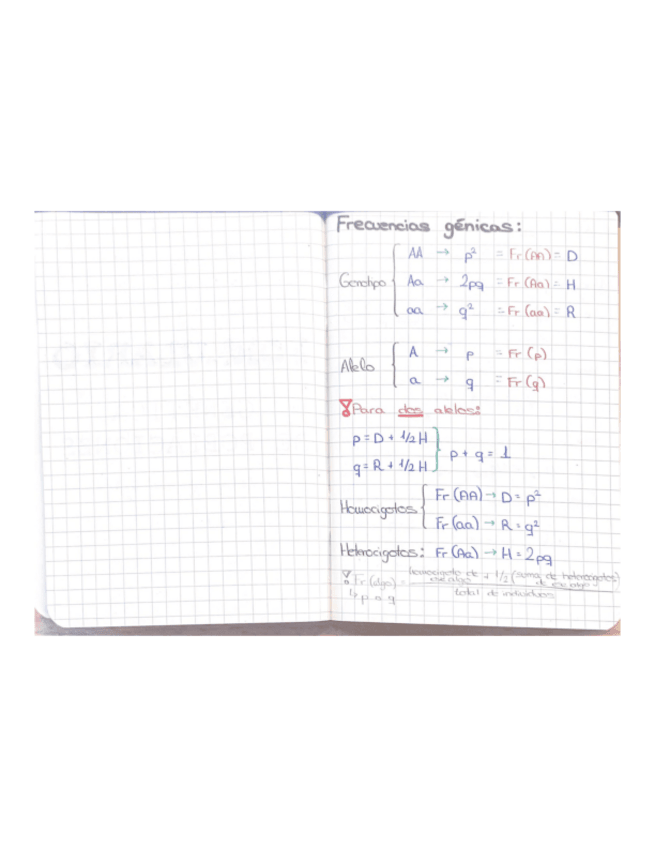 Frecuencias génicas:
Genotipo
AA → p² = Fr (AA) = D
Aa → 2pq = Fr (Aa) = H
aa → q² = Fr (aa) = R
Alelo
A → p = Fr (p)
a → q = Fr (q)
Para dos alelos:
p = D + 1/2 H
q = R + 1/2 H
p + q = 1
Homocigotos
Fr (AA) → D = p²
Fr (aa) → R = q²
Heterocigotos: Fr (Aa) → H = 2pq
Fr (algo) = homocigoto de ese algo + 1/2 (suma de heterocigotos de ese algo)
total de individuos
↳ p o q